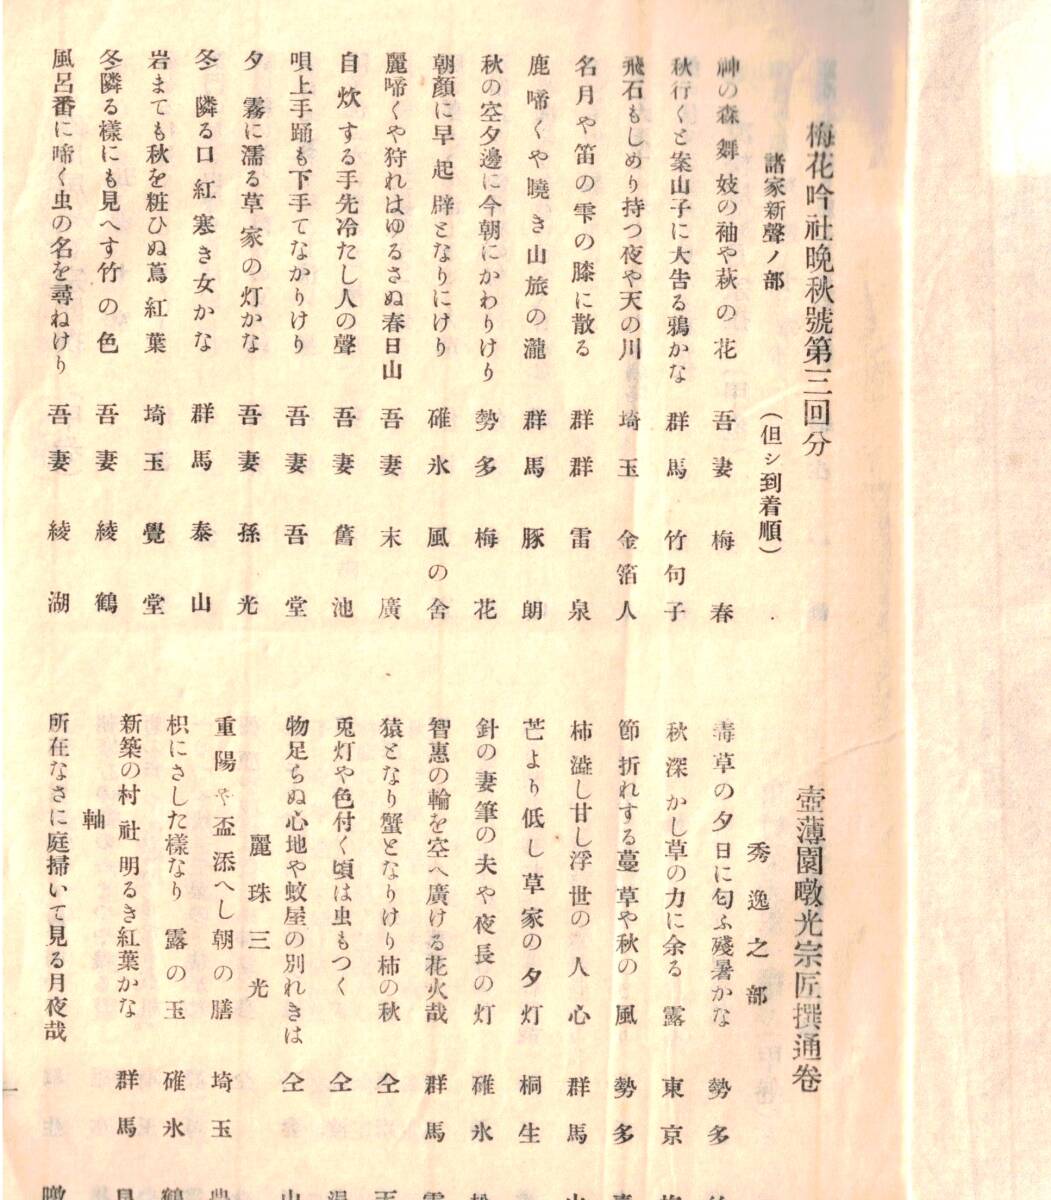 梅花吟社晩秋號第三回分
諸家新聲ノ部　（但シ到着順）
神の森舞妓の袖や萩の花　吾妻　梅春
秋行くと案山子に大告る鴉かな　群馬　竹句子
飛石もしめり持つ夜や天の川　埼玉　金箔人
名月や笛の雫の膝に散る　群群　雷泉
鹿啼くや曉き山旅の瀧　群馬　豚朗
秋の空夕邊に今朝にかわりけり　勢多　梅花
朝顔に早起辟となりにけり　碓氷　風の舍
麗啼くや狩れはゆるさぬ春日山　吾妻　末廣
自炊する手先冷たし人の聲　吾妻　舊池
唄上手踊も下手てなかりけり　吾妻　吾堂
夕霧に濡る草家の灯かな　吾妻　孫光
冬隣る口紅寒き女かな　群馬　泰山
岩まても秋を粧ひぬ蔦紅葉　埼玉　覺堂
冬隣る樣にも見へす竹の色　吾妻　綾鶴
風呂番に啼く虫の名を尋ねけり　吾妻　綾湖
壺薄園暾光宗匠撰通卷
秀逸之部
毒草の夕日に匂ふ殘暑かな　勢多
秋深かし草の力に余る露　東京
節折れする蔓草や秋の風　勢多
柿澁し甘し浮世の人心　群馬
芒より低し草家の夕灯　桐生
針の妻筆の夫や夜長の灯　碓氷
智惠の輪を空へ廣ける花火哉　群馬
猿となり蟹となりけり柿の秋　仝
兎灯や色付く頃は虫もつく　仝
物足らぬ心地や蚊屋の別れきは　仝
麗珠三光
重陽や盃添へし朝の膳　埼玉
枳にさした樣なり露の玉　碓氷
新築の村社明るき紅葉かな　群馬
軸
所在なさに庭掃いて見る月夜哉　暾